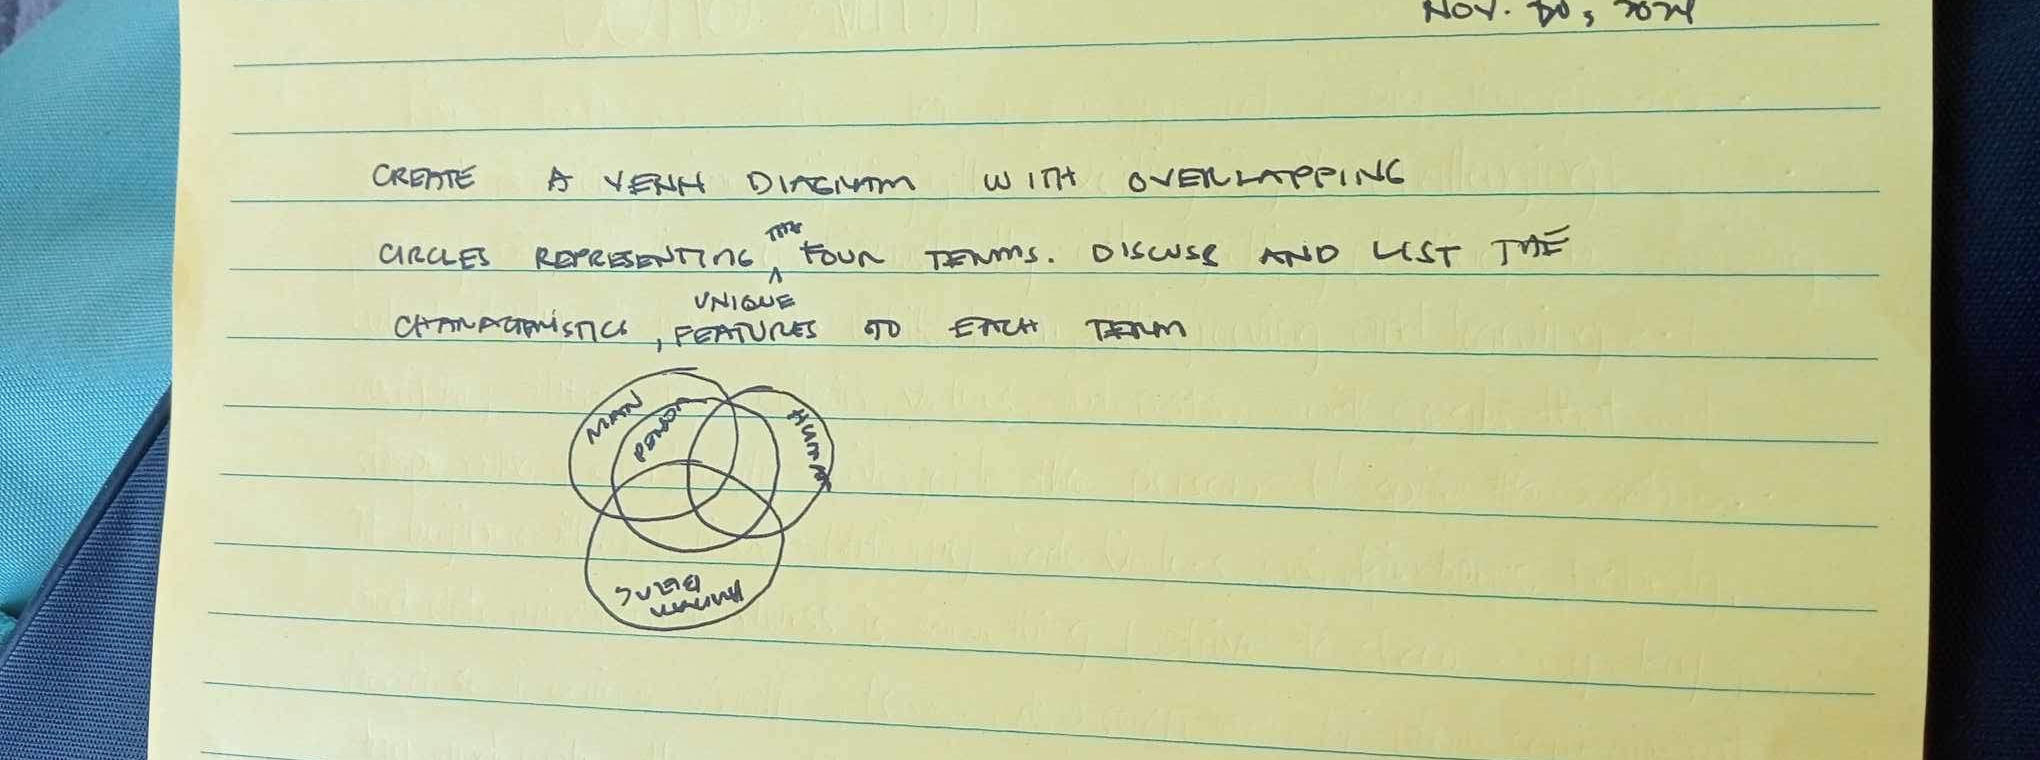 NOV. 20, 2024
CREATE A VENN DIAGRAM WITH OVERLAPPING
CIRCLES REPRESENTING THE FOUR TERMS. DISCUSS AND LIST THE
CHARACTERISTICS, UNIQUE FEATURES TO EACH TERM
MAN
PERSON
HUMAN
HUMAN
BEING